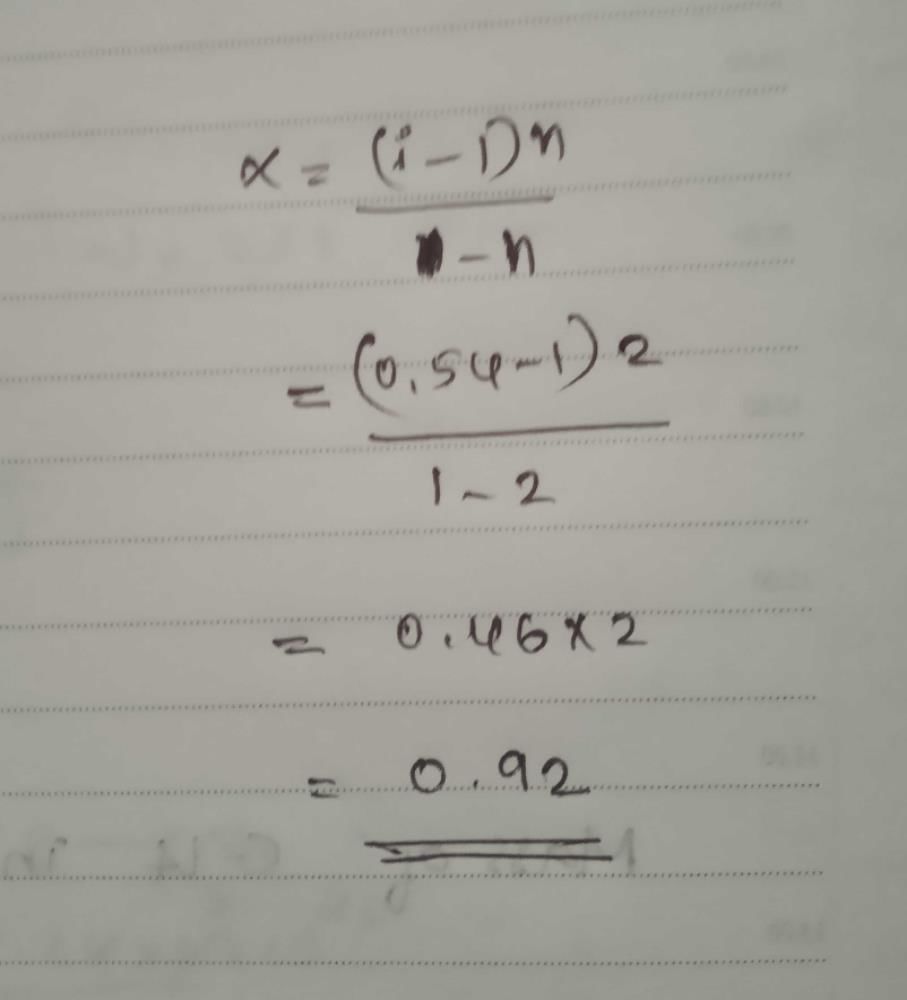 α = (i – 1)n
1 – n
= (0.54–1) 2
1 – 2
= 0.46 × 2
= 0.92